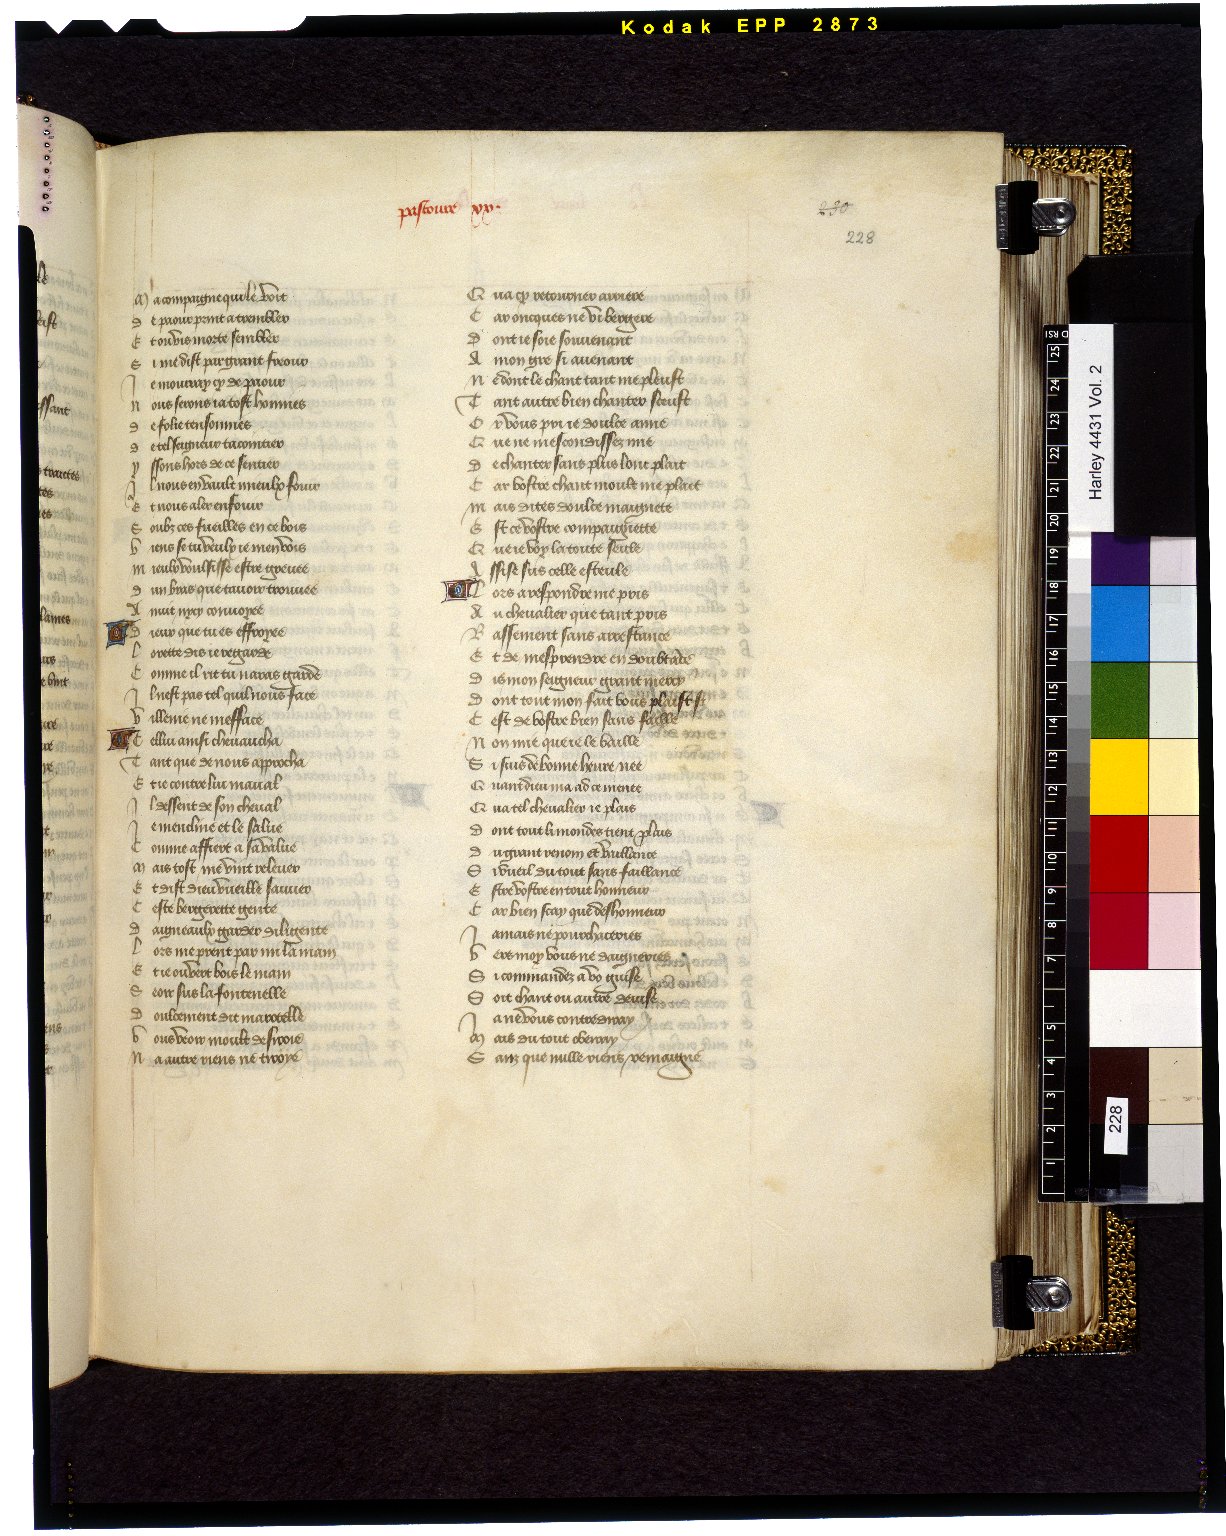 Kodak EPP 2873
pastoure xx.
230
228
M a compaigne qui le voit
D e paour print a trembler
E t ou vis morte sembler
S i me dist par grant freour
J e mourray cy de paour
N ous serons ia tost honnies
D e folie tensonnies
D e tel seigneur tacointier
Y ssons hors de ce sentier
J l nous en vault mieulx fouir
E t nous aler enfouir
S oubz ces fueilles en ce bois
V iens se tu veulx ie men vois
M ieulx voulsisse estre grevee
D un bras que tavoir trouvee
A nuit nycy convoyee
D ieux que tu es effroyee
L orette dis ie regarde
C omme il rit tu naras garde
J l nest pas tel quil nous face
V illenie ne mefface
C ellui ainsi chevaucha
T ant que de nous approcha
E t ie contre lui m aval
J l dessent de son cheval
J e mencline et le salue
C omme affiert a sa value
M ais tost me vint relever
E t dist dieu vueille sauver
C este bergerette gente
D aigneaulx garder diligente
L ors me prent par mi la main
E t ie ou vert bois le main
S eoir sus la fontenelle
D oulcement dit marotelle
V ous veoir moult desiroie
N a autre riens ne tiroye
Q ua cy retourner arriere
C ar oncques ne vi bergere
D ont ie soie souvenant
A mon gre si avenant
N e dont le chant tant me pleust
T ant autre bien chanter sceust
O r vous pri ie doulce amie
Q ue ne mescondissez mie
D e chanter sans plus long plait
C ar vostre chant moult me plait
M ais dites doulce maignete
E st ce vostre compaignette
Q ue ie voy la toute seule
A ssise sus celle esteule
L ors a respondre me pris
A u chevalier que tant pris
B assement sans arrestance
E t de mesprendre en doubtance
D is mon seigneur grant mercy
D ont tout mon fait vous plaist si
C est de vostre bien sans faille
N on mie que ie le vaille
S i suis de bonne heure nee
Q uant dieu ma ad ce menee
Q ua tel chevalier ie plais
D ont tout li mondes tient plais
D u grant renom et vaillance
S i vueil du tout sans faillance
E stre vostre en tout honneur
C ar bien scay que deshonneur
J amais ne pourchaceries
V ers moy vous ne daigneries
S i commandez a vo guise
S oit chant ou autre devise
J a ne vous contrediray
M ais du tout obeiray
S anz que nulle riens remaigne
Harley 4431 Vol. 2
228
25
24
23
22
21
20
19
18
17
16
15
14
13
12
11
10
9
8
7
5
4
3
2
1